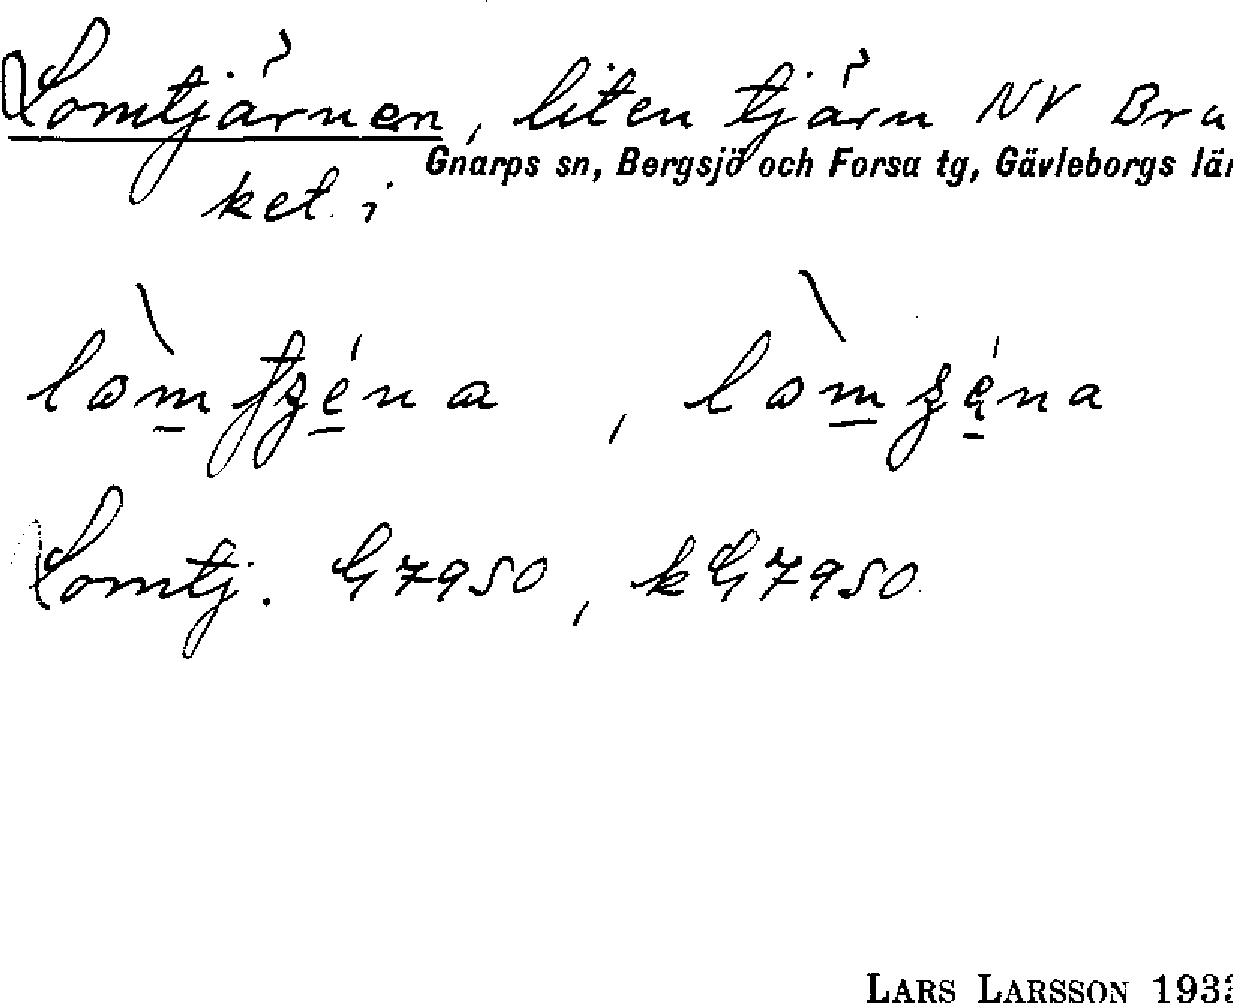 Lomtjärnen, liten tjärn NV Bru
Gnarps sn, Bergsjö och Forsa tg, Gävleborgs län
ket i
Lomtj. G7950, kG7950
LARS LARSSON 1933